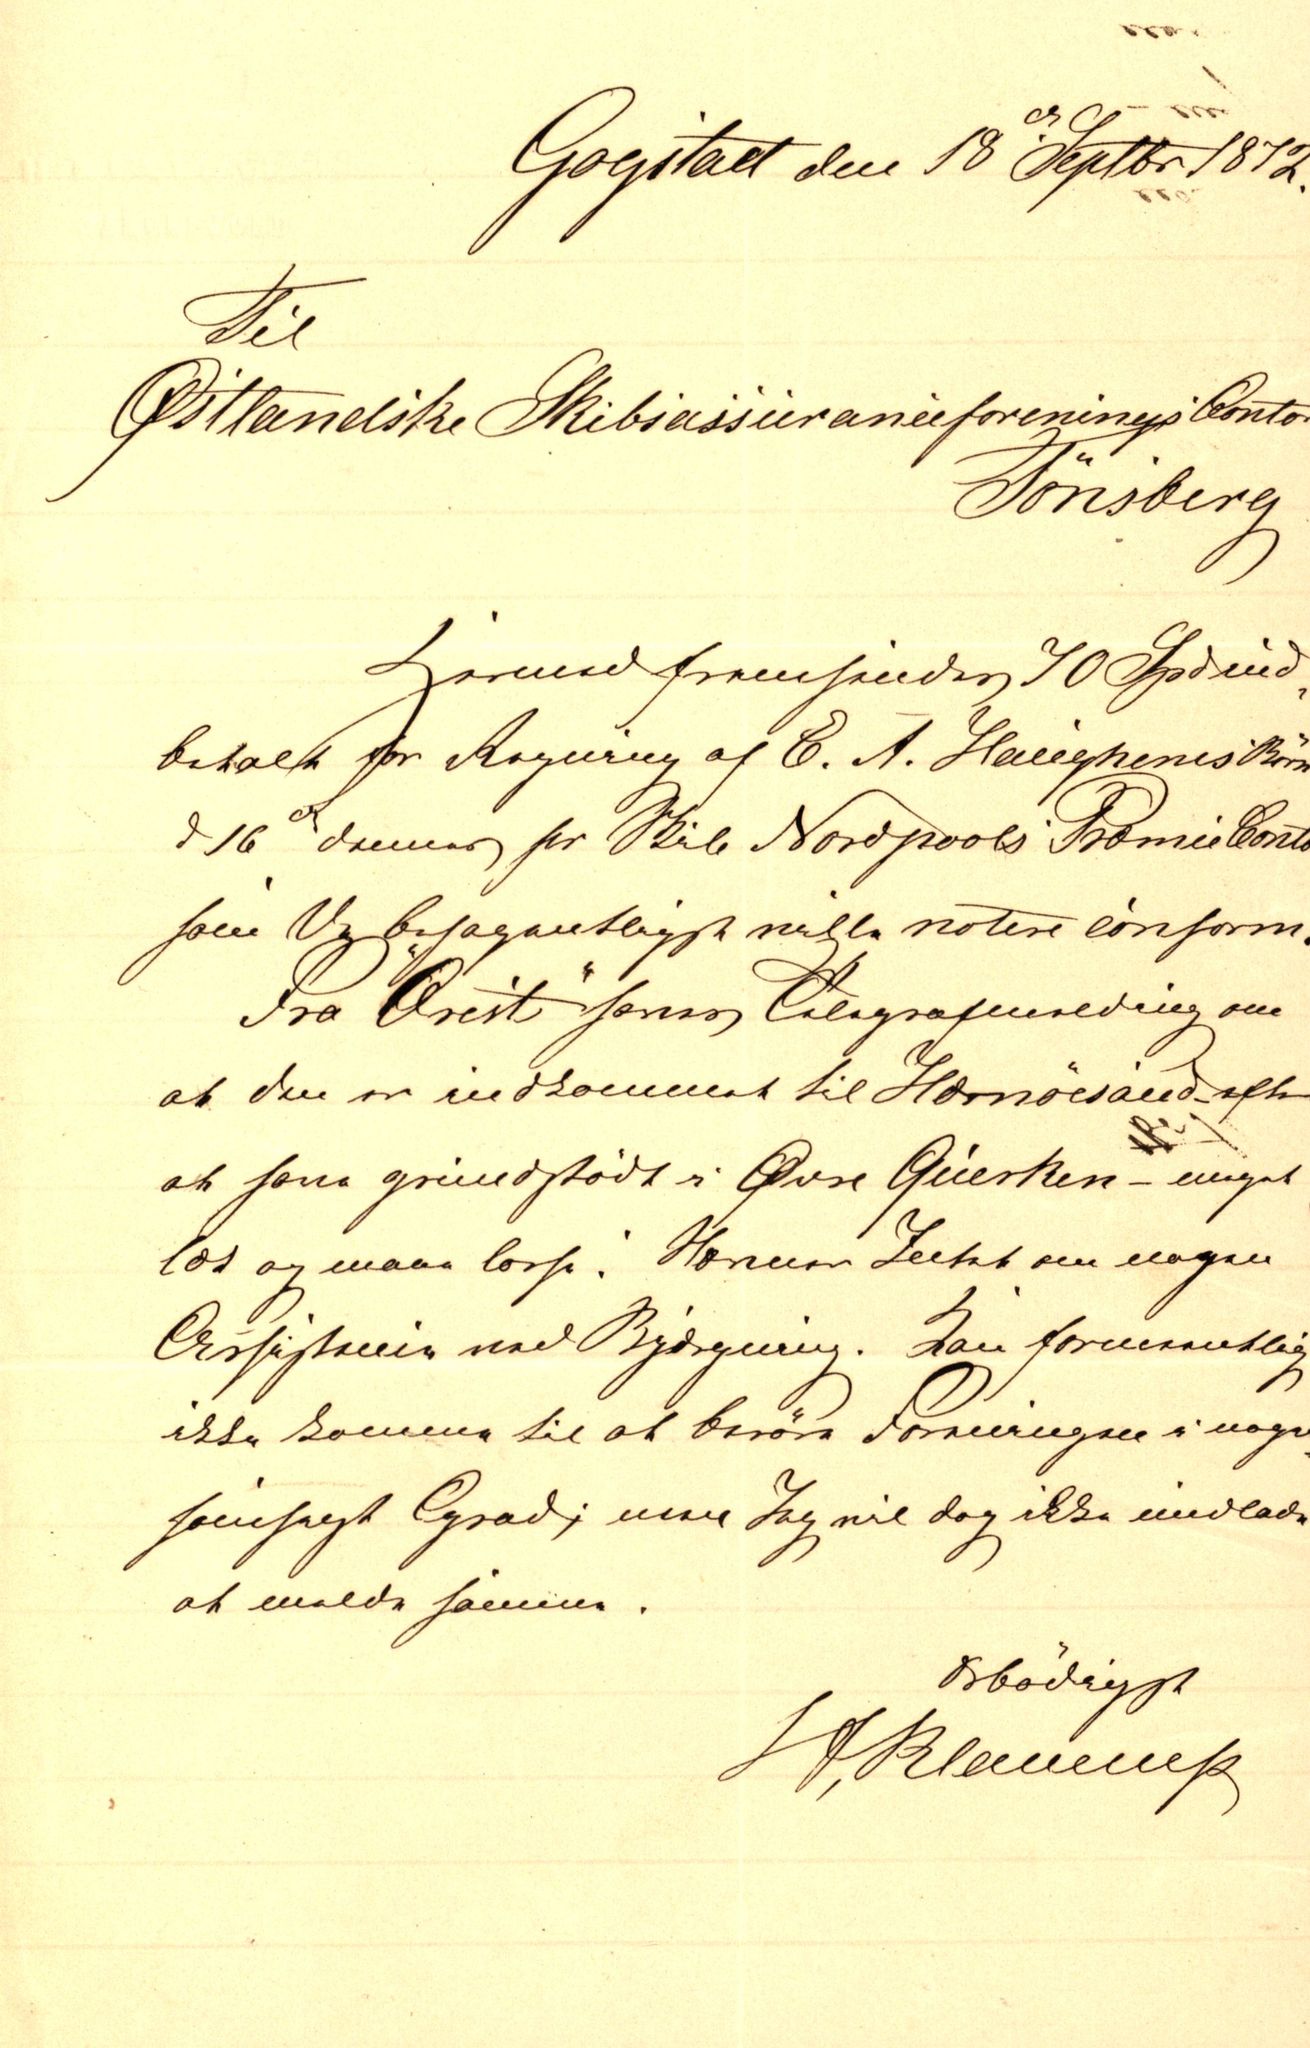 Gogstad den 18de Septbr 1872.
Til
Østlandske Skibsassuranceforenings Contor
Tönsberg
Hermed fremsendes 70 Spd ind-
betalt for Regning af E. A.
d 16de dennes for Skib Nordpools Præmie Conto
som De behageligst ville notere conform.
Fra "Ørist" haves Telegrafmelding om
at den er indkommet til Hernösand efter
at have grundstödt i Øvre Querken - meget
læk og maa losse. Nævner Intet om nogen
Assistence ved Bjergning. Kan formentlig
ikke komme til at beröre Foreningen i nogen-
somhelst Grad; men Jeg vil dog ikke undlade
at melde samme.
Ærbödigst
Klavenes